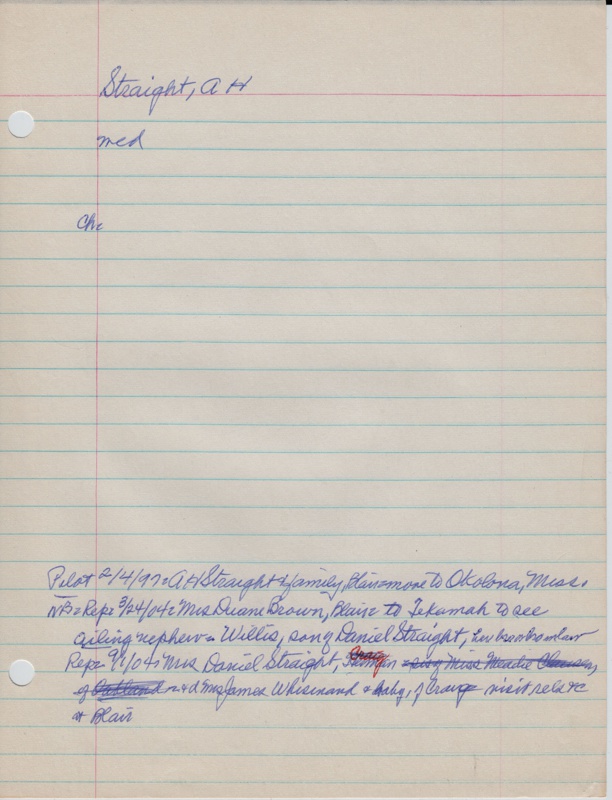 Straight, A H
med
Ch:
Pilot 2/4/97: A H Straight & family, Blair = move to Okolona, Miss.
NB = Rep: 3/24/04: Mrs Duane Brown, Blair to Tekamah to see
ailing nephew = Willis, son of Daniel Straight, her
Rep: 9/1/04: Mrs Daniel Straight, Craig Miss Maude
of Oakland & d Mrs James Whisinand & baby, of Craig visit rels
at Blair